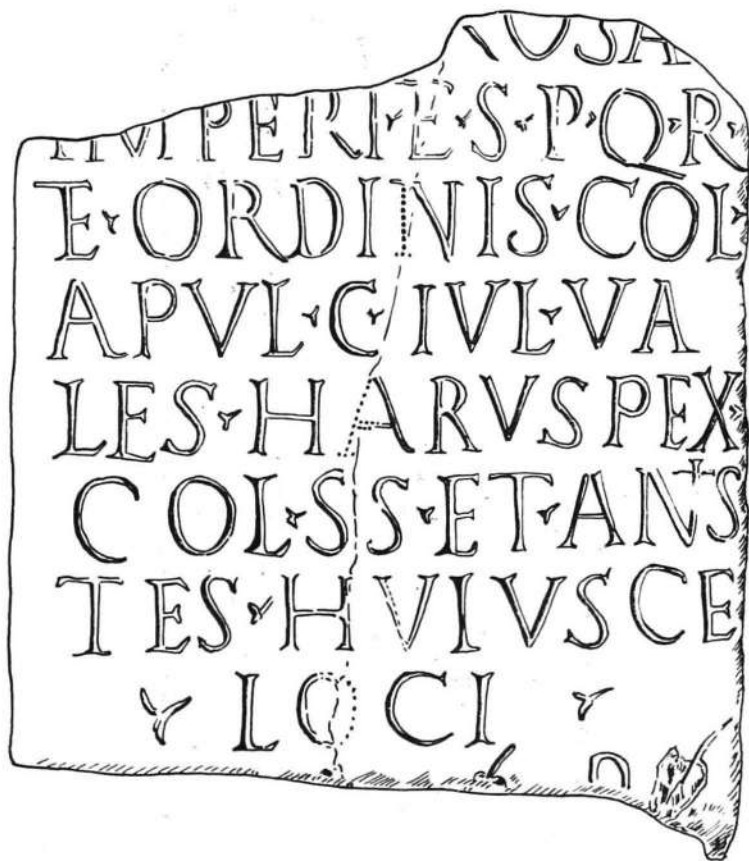 ROSA
IMPERI·ET·S·P·Q·R·
ET·ORDINIS·COL·
APVL·C·IVL·VA
LES·HARVSPEX·
COL·S S·ET·ANTIS
TES·HVIVSCE
LOCI